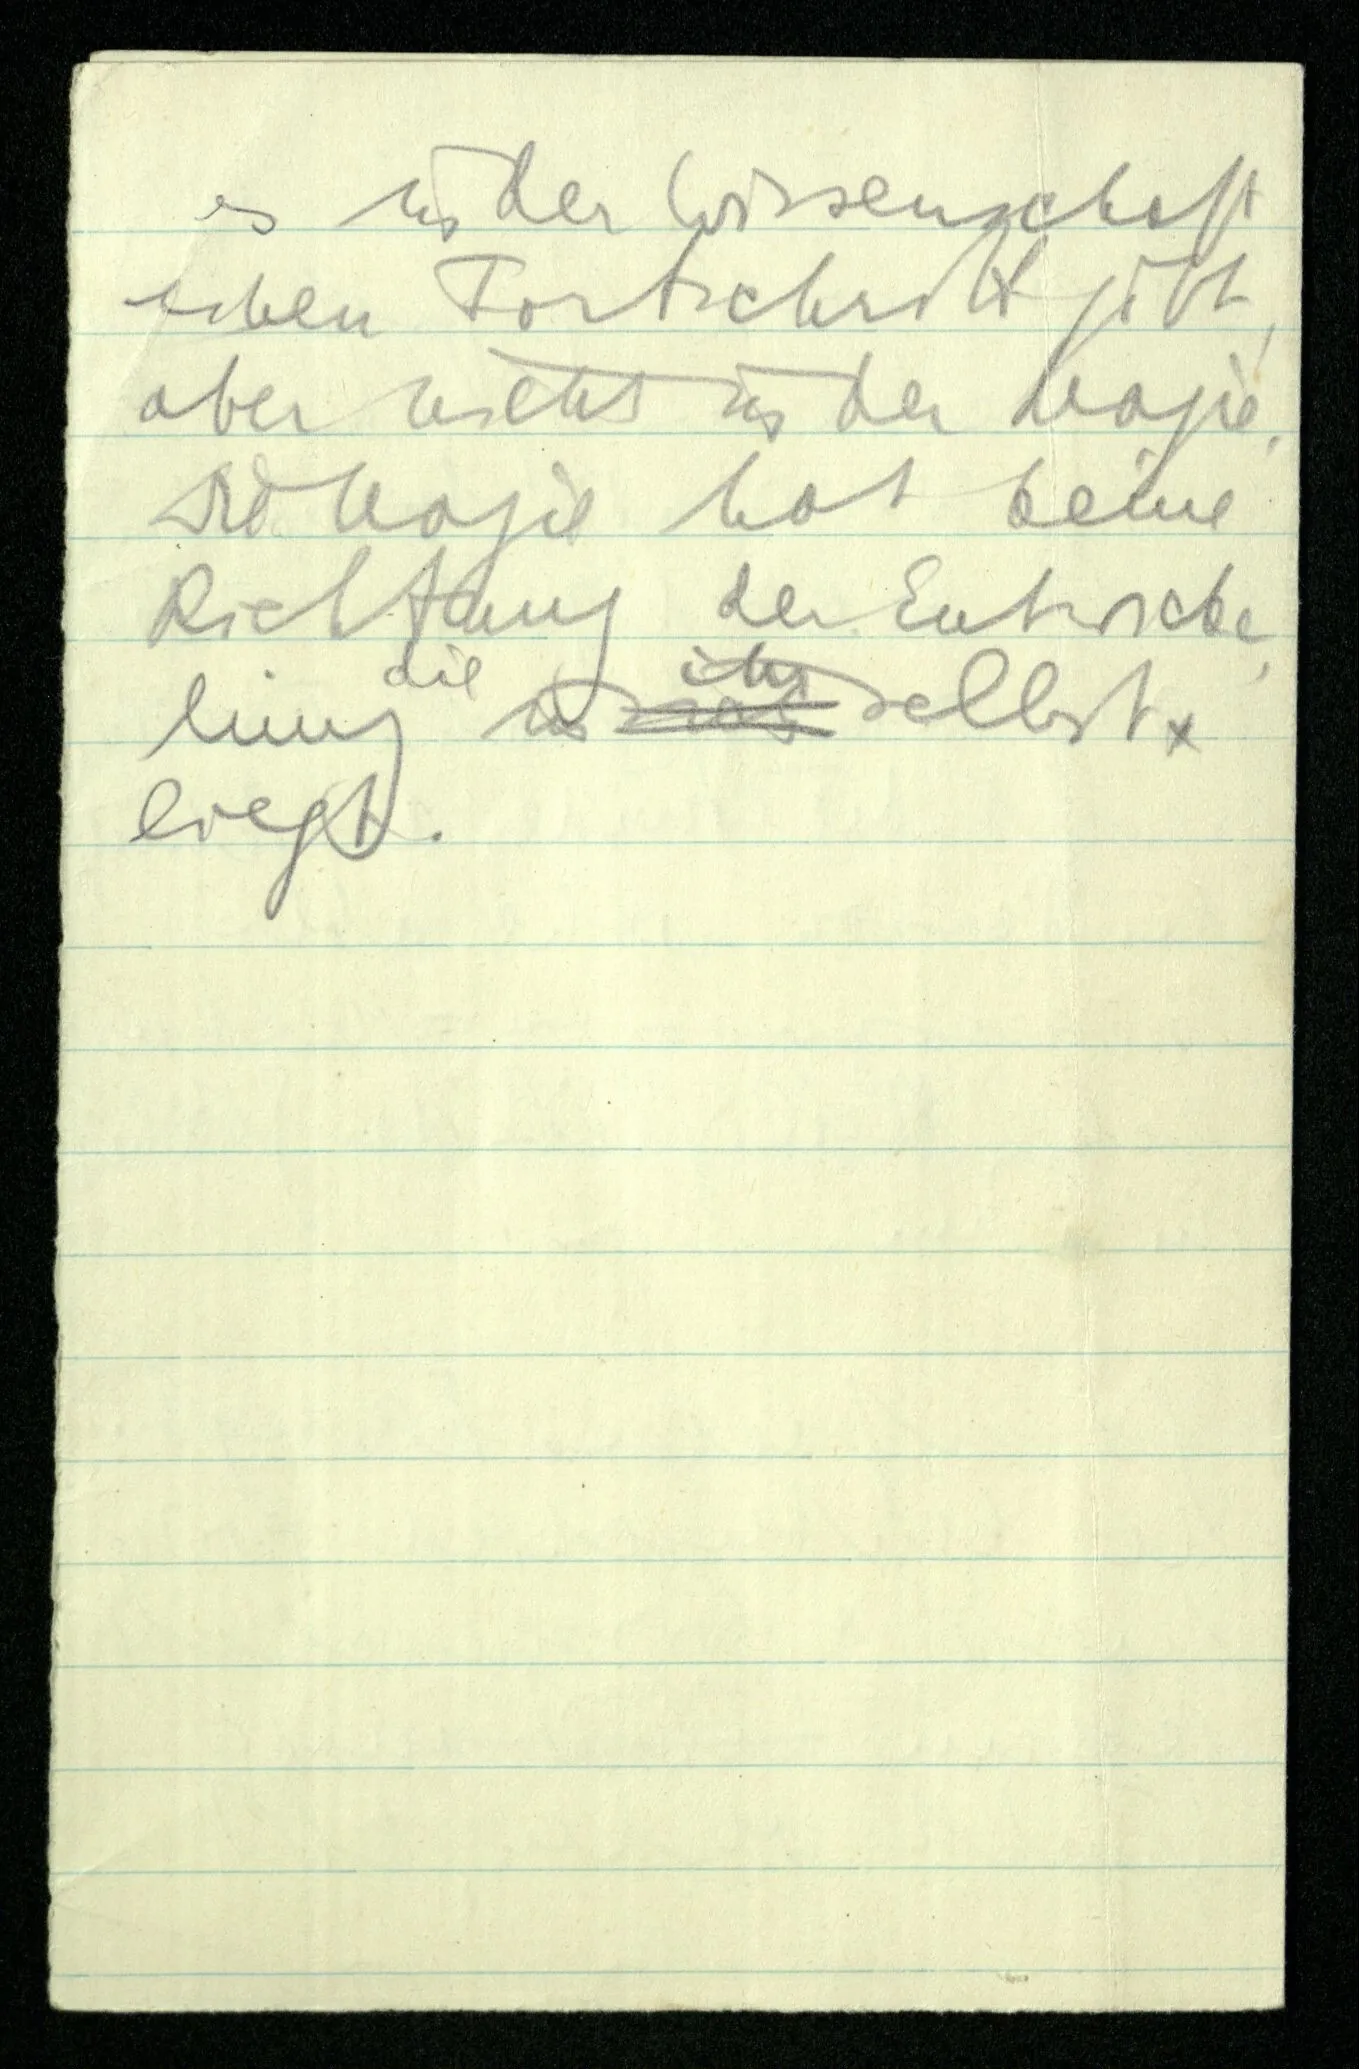 es in der Wissenschaft
einen Fortschritt gibt,
aber nicht in der Magie.
Die Magie hat keine
Richtung der Entwicke
die ihr
lung in selbst x
liegt.